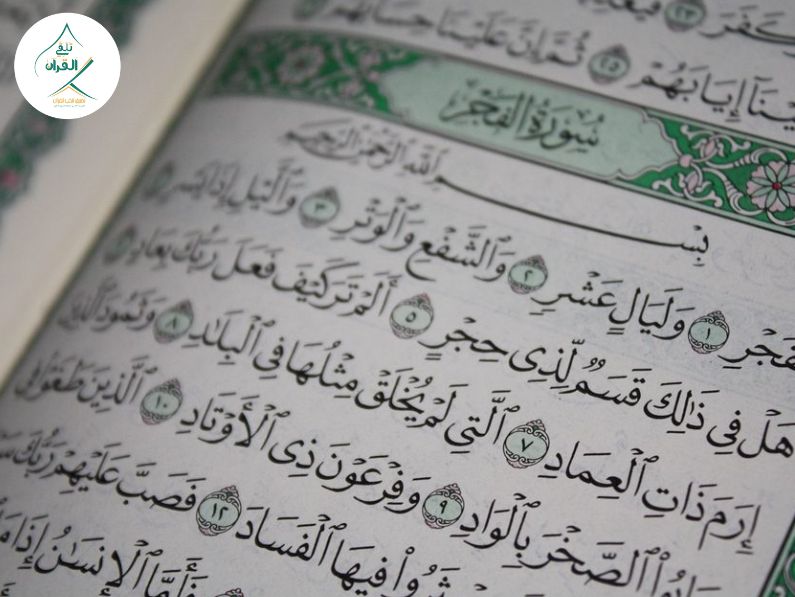 تلقي
القرآن
كَفَرَ ٢٣
يْنَآ إِيَابَهُمْ ٢٥ ثُمَّ إِنَّ عَلَيْنَا حِسَابَهُم
سُورَةُ الفَجْرِ
بِسْمِ ٱللَّهِ ٱلرَّحْمَٰنِ ٱلرَّحِيمِ
فَجْرِ ١ وَلَيَالٍ عَشْرٍ ٢ وَٱلشَّفْعِ وَٱلْوَتْرِ ٣ وَٱلَّيْلِ إِذَا يَسْرِ
هَلْ فِى ذَٰلِكَ قَسَمٌ لِّذِى حِجْرٍ ٥ أَلَمْ تَرَ كَيْفَ فَعَلَ رَبُّكَ بِعَادٍ
إِرَمَ ذَاتِ ٱلْعِمَادِ ٧ ٱلَّتِى لَمْ يُخْلَقْ مِثْلُهَا فِى ٱلْبِلَٰدِ ٨ وَثَمُودَ ٱلَّذِينَ
ابُوا۟ ٱلصَّخْرَ بِٱلْوَادِ ٩ وَفِرْعَوْنَ ذِى ٱلْأَوْتَادِ ١٠ ٱلَّذِينَ طَغَوْا۟ فِى
ثَرُوا۟ فِيهَا ٱلْفَسَادَ ١٢ فَصَبَّ عَلَيْهِمْ رَبُّكَ
فَأَمَّا ٱلْإِنسَٰنُ إِذَا مَا